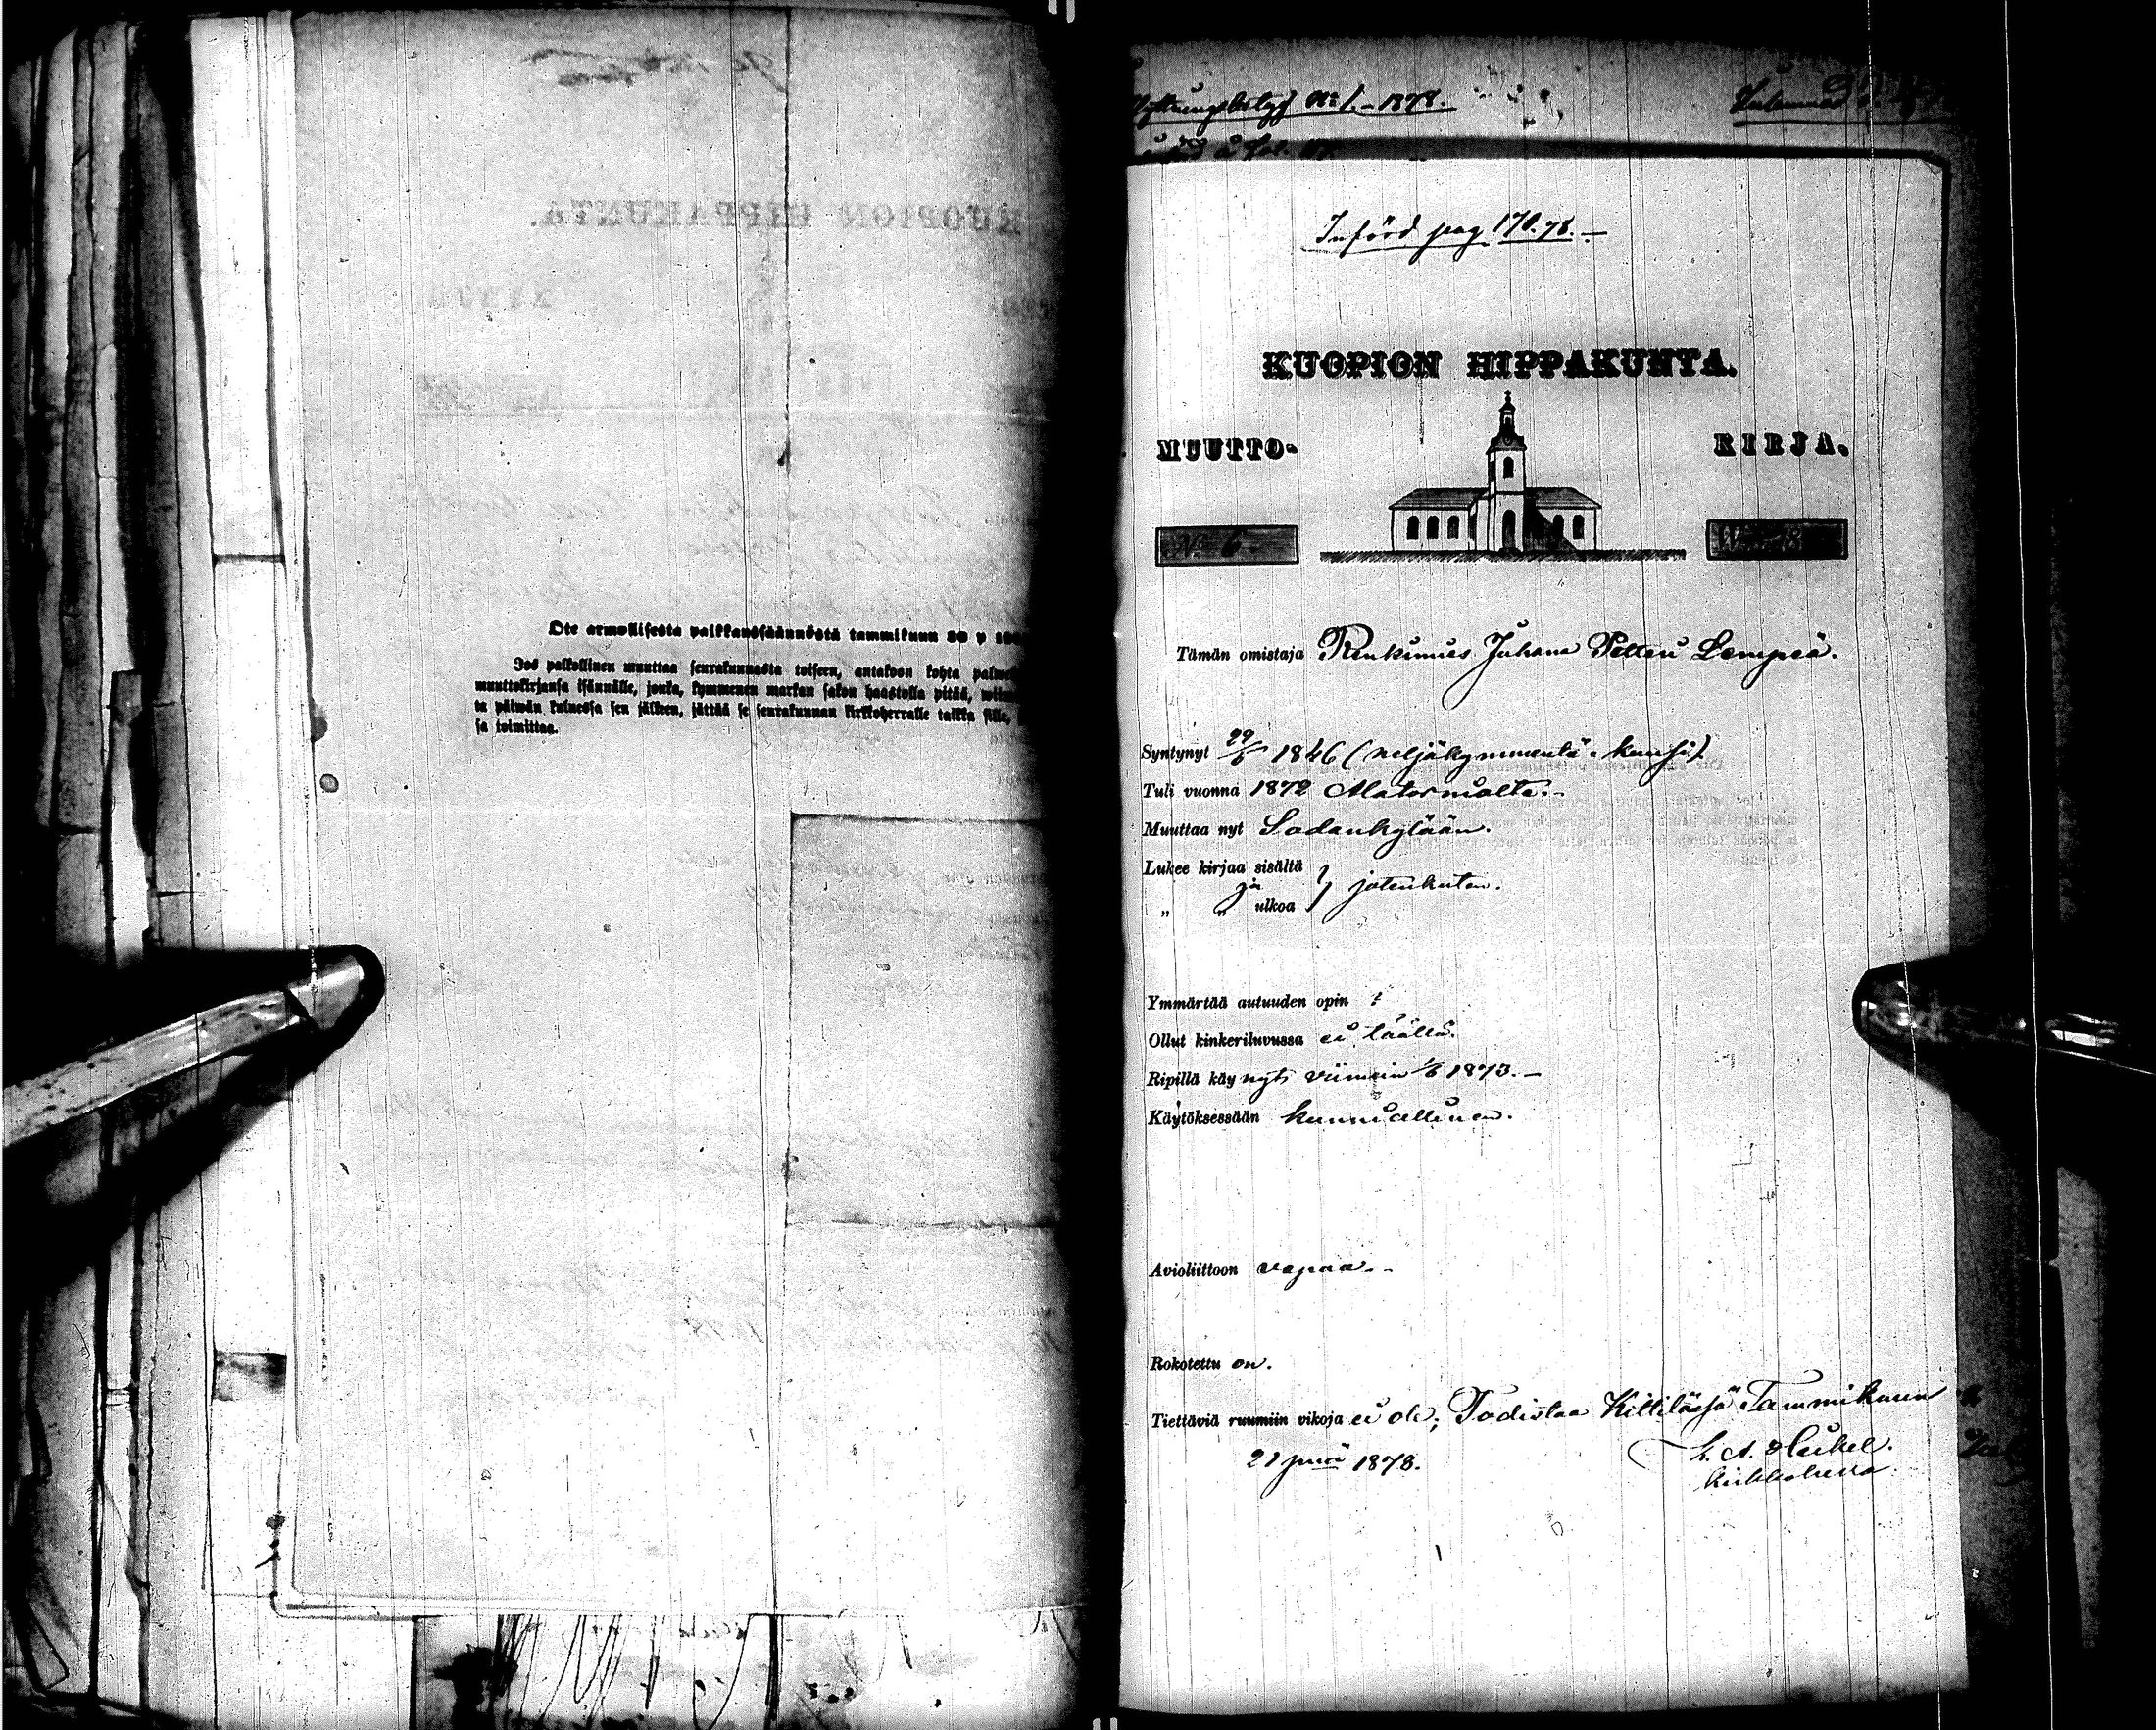 Ote armollisesta palkkaussäännöstä tammikuun 30 p
Jos palkollinen muuttaa seurakunnasta toiseen, antakoon kohta
muuttokirjansa isännälle, jonka, kymmenen markan sakon haastolla pitää,
ta päiwän kuluessa sen jälkeen, jättää se seurakunnan kirkkoherralle taikka sille,
sa toimittaa.
No 1. – 1878.
Införd pag 178.78. –
KUOPION HIPPAKUNTA.
MUUTTO- KIRJA.
No 6.
Tämän omistaja Renkimies Juhana Petteri Lempeä.
Syntynyt 29/6 1846 (neljäkymmentä-kuusi).
Tuli vuonna 1872 Alatorniolta. –
Muuttaa nyt Sodankylään.
Lukee kirjaa sisältä
ja } jotenkuten.
„ „ ulkoa
Ymmärtää autuuden opin :
Ollut kinkeriluvussa ei täällä.
Ripillä käynyt viimein 1/6 1873. –
Käytöksessään kunniallinen.
Avioliittoon vapaa. –
Rokotettu on.
Tiettäviä ruumiin vikoja ei ole; Todistaa Kittilässä Tammikuun
21 pnä 1878.
Heikel.
kirkkoherra.